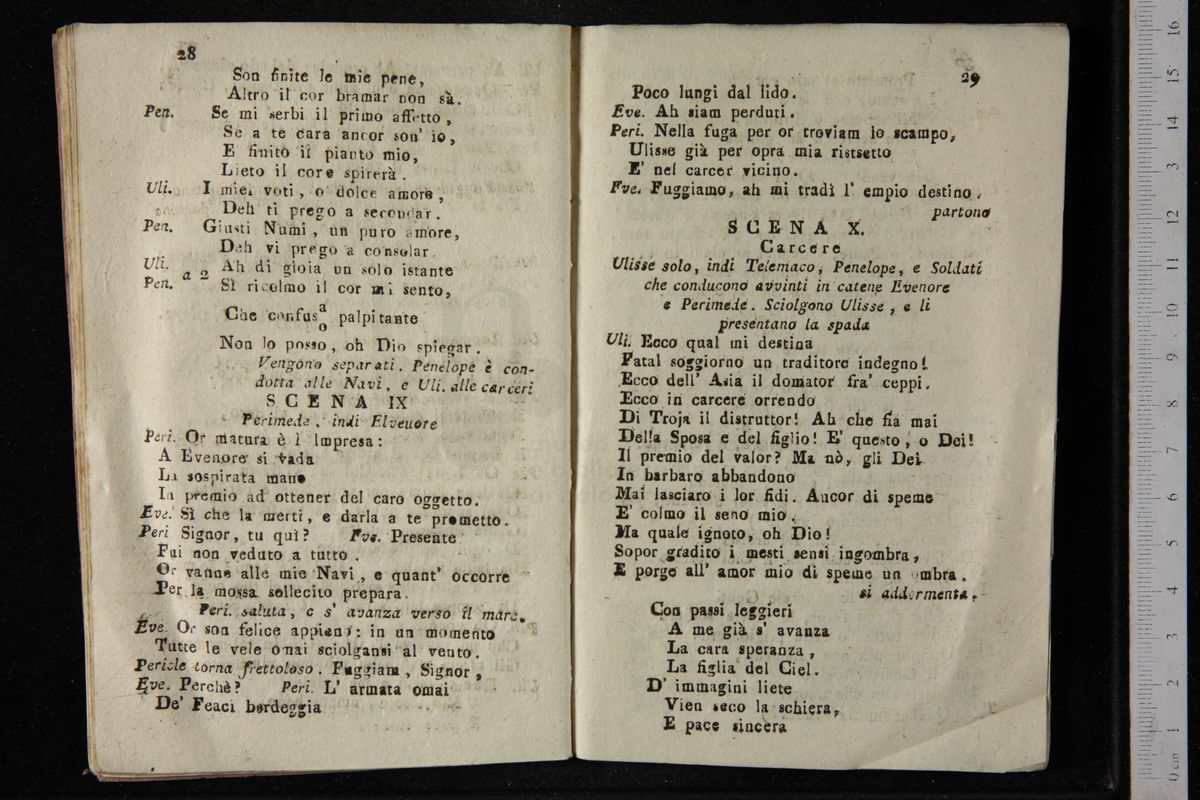 28
Son finite le mie pene,
Altro il cor bramar non sà.
Pen. Se mi serbi il primo affetto,
Se a te cara ancor son' io,
E finito il pianto mio,
Lieto il core spirerà.
Uli. I miei voti, o dolce amore,
Deh ti prego a secondar.
Pen. Giusti Numi, un puro amore,
Deh vi prego a consolar.
Uli. a 2 Ah di gioia un solo istante
Pen. Sì ricolmo il cor mi sento,
Che confus a/o palpitante
Non lo posso, oh Dio spiegar.
Vengono separati. Penelope è con-
dotta alle Navi, e Uli. alle carceri
SCENA IX
Perimede, indi Elveuore
Peri. Or matura è l Impresa:
A Evenore si vada
La sospirata mano
In premio ad ottener del caro oggetto.
Eve. Sì che la merti, e darla a te prometto.
Peri Signor, tu quì? Fve. Presente
Fui non veduto a tutto.
Or vanne alle mie Navi, e quant' occorre
Per la mossa sollecito prepara.
Peri. saluta, c s' avanza verso il mare.
Eve. Or son felice appieno: in un momento
Tutte le vele omai sciolgansi al vento.
Pericle torna frettoloso. Fuggiam, Signor,
Eve. Perchè? Peri. L' armata omai
De' Feaci bordeggia
29
Poco lungi dal lido.
Eve. Ah siam perduti.
Peri. Nella fuga per or troviam lo scampo,
Ulisse già per opra mia ristsetto
E' nel carcer vicino.
Fve. Fuggiamo, ah mi tradì l' empio destino.
partono
SCENA X.
Carcere
Ulisse solo, indi Telemaco, Penelope, e Soldati
che conducono avvinti in catene Evenore
e Perimede. Sciolgono Ulisse, e li
presentano la spada
Uli. Ecco qual mi destina
Fatal soggiorno un traditore indegno!
Ecco dell' Asia il domator fra' ceppi.
Ecco in carcere orrendo
Di Troja il distruttor! Ah che fia mai
Della Sposa e del figlio! E' questo, o Dei!
Il premio del valor? Ma nò, gli Dei
In barbaro abbandono
Mai lasciaro i lor fidi. Ancor di speme
E' colmo il seno mio.
Ma quale ignoto, oh Dio!
Sopor gradito i mesti sensi ingombra,
E porge all' amor mio di speme un ombra.
si addormenta.
Con passi leggieri
A me già s' avanza
La cara speranza,
La figlia del Ciel.
D' immagini liete
Vien seco la schiera,
E pace sincera